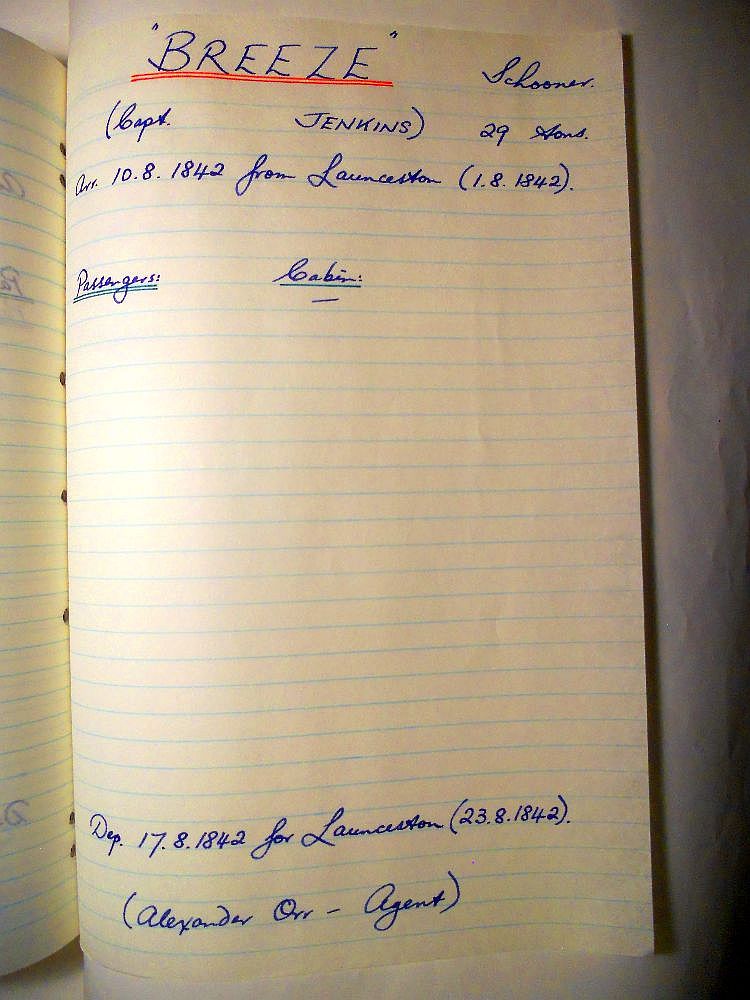 "BREEZE" Schooner.
(Capt. JENKINS) 29 tons.
Arr. 10.8.1842 from Launceston (1.8.1842).
Passengers: Cabin:
—
Dep. 17.8.1842 for Launceston (23.8.1842).
(Alexander Orr - Agent)